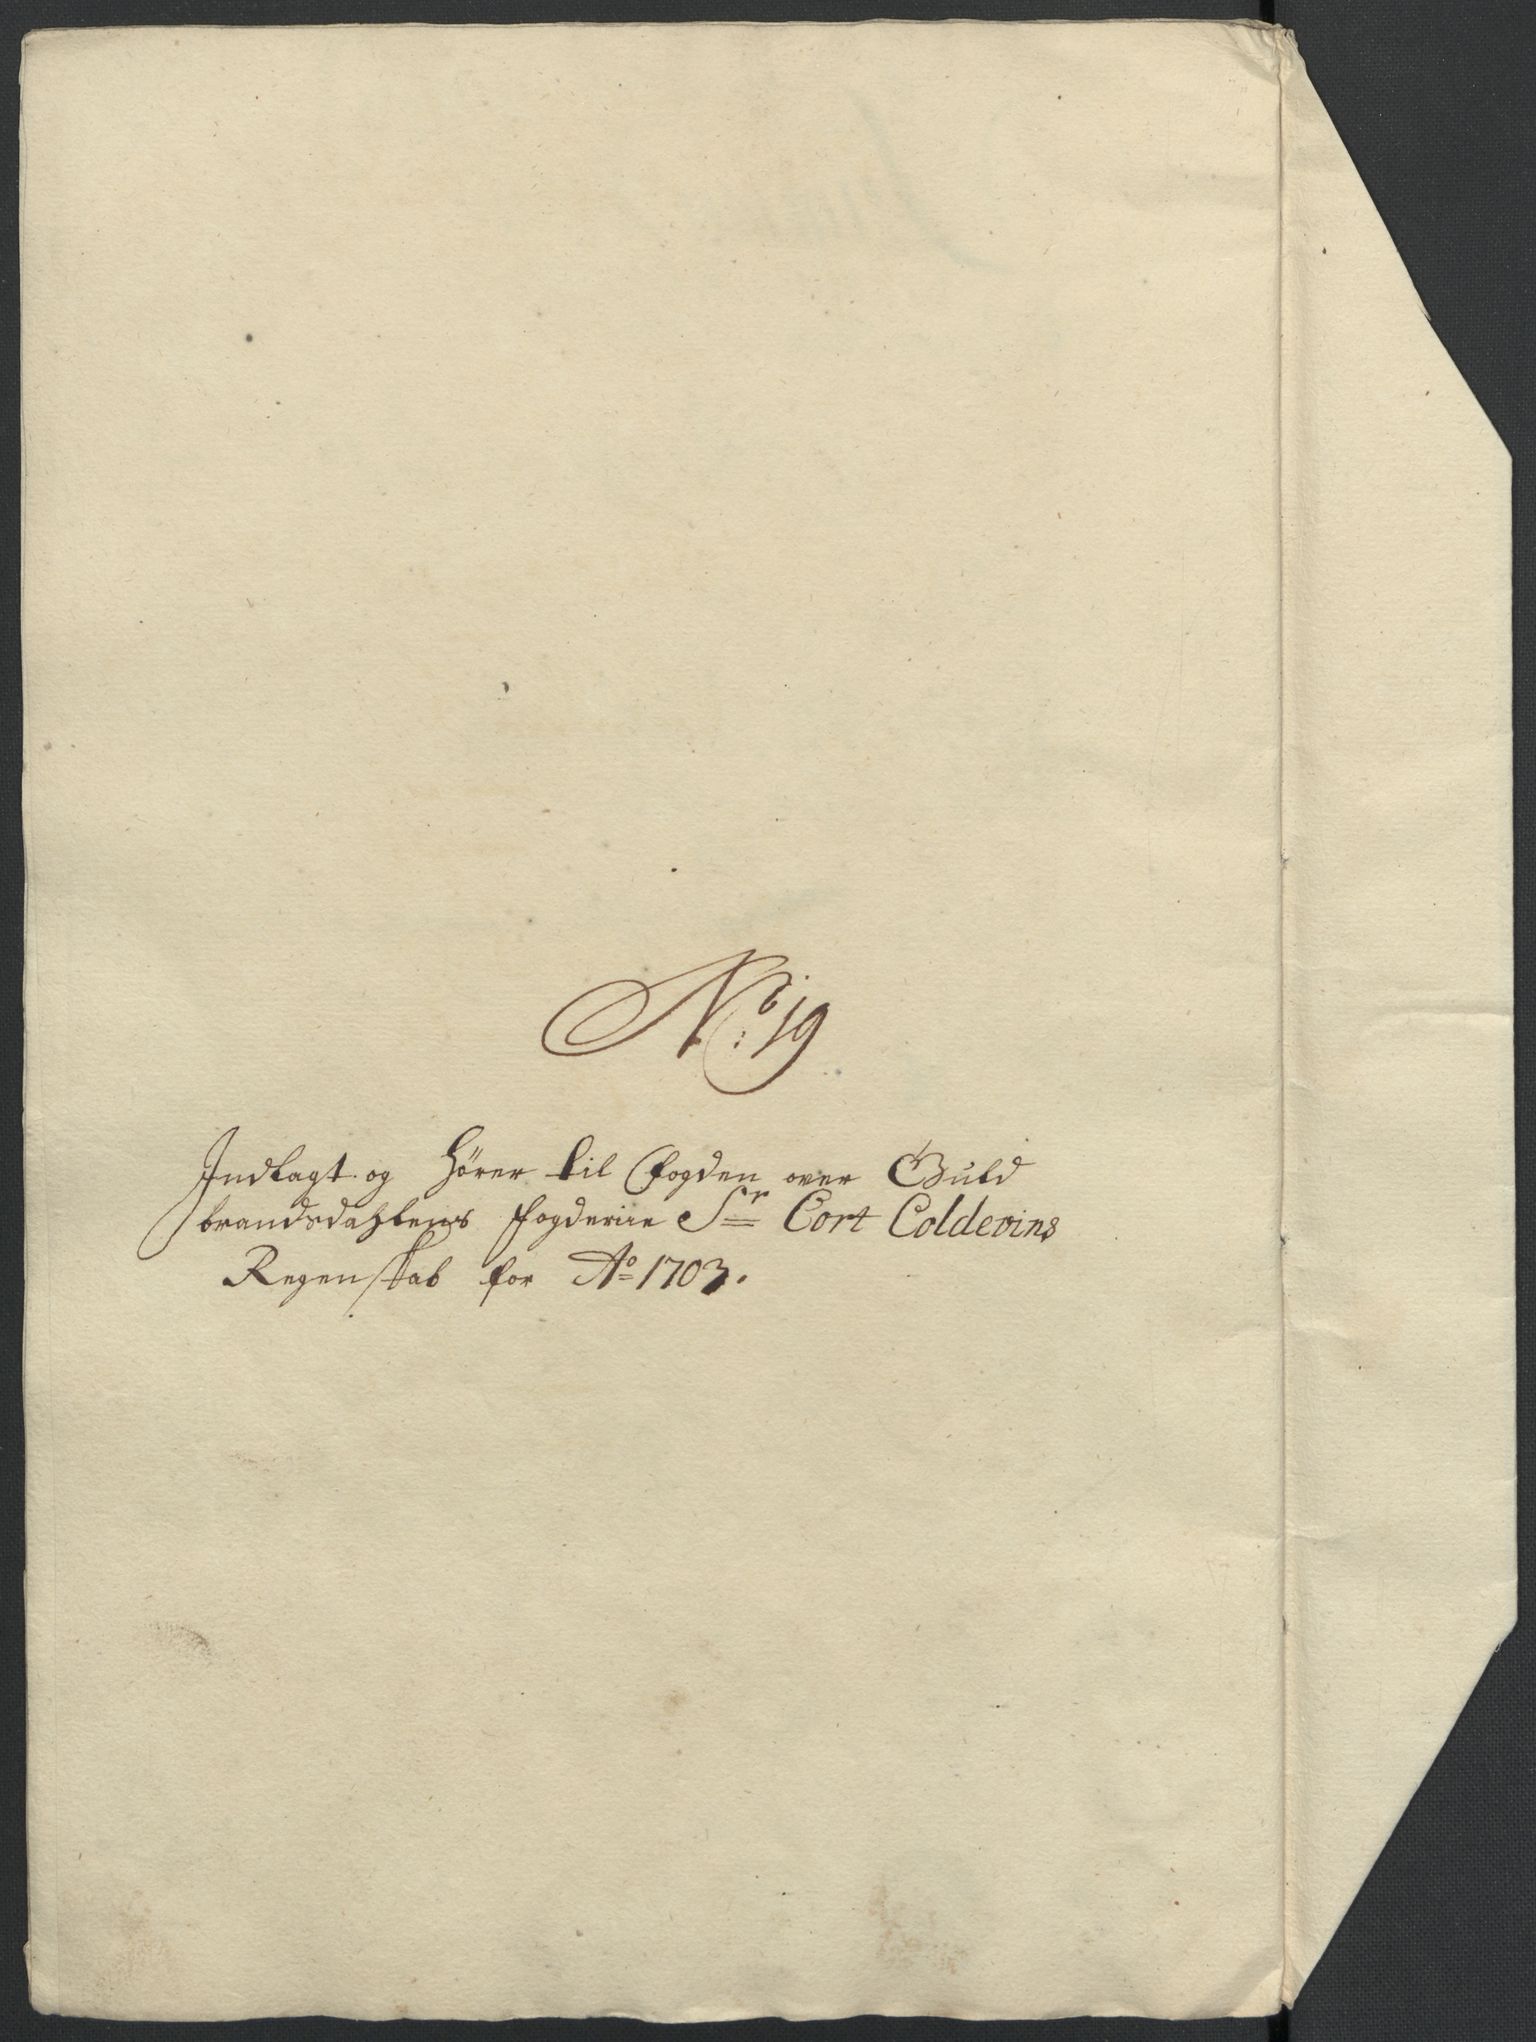 No: 19
Indlagt og hörer til fogden over Guld
brandsdahlens fogderie Sr Cort Coldevins
Regenskab for Ao 1703.